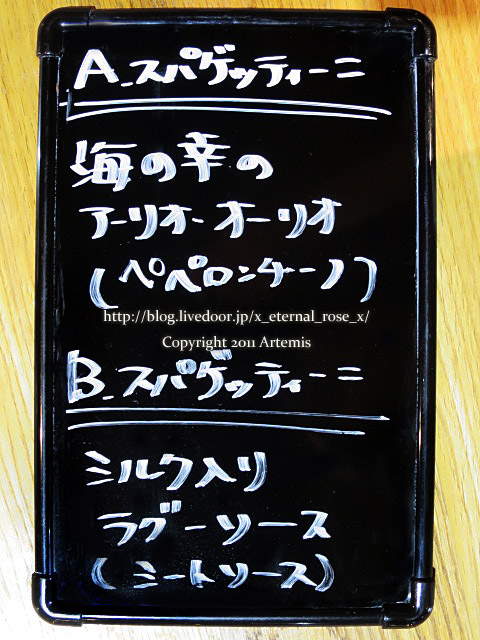 A.スパゲッティーニ
海の幸の
アーリオ・オーリオ
(ペペロンチーノ)
http://blog.livedoor.jp/x_eternal_rose_x/
Copyright 2011 Artemis
B.スパゲッティーニ
ミルク入り
ラグーソース
(ミートソース)